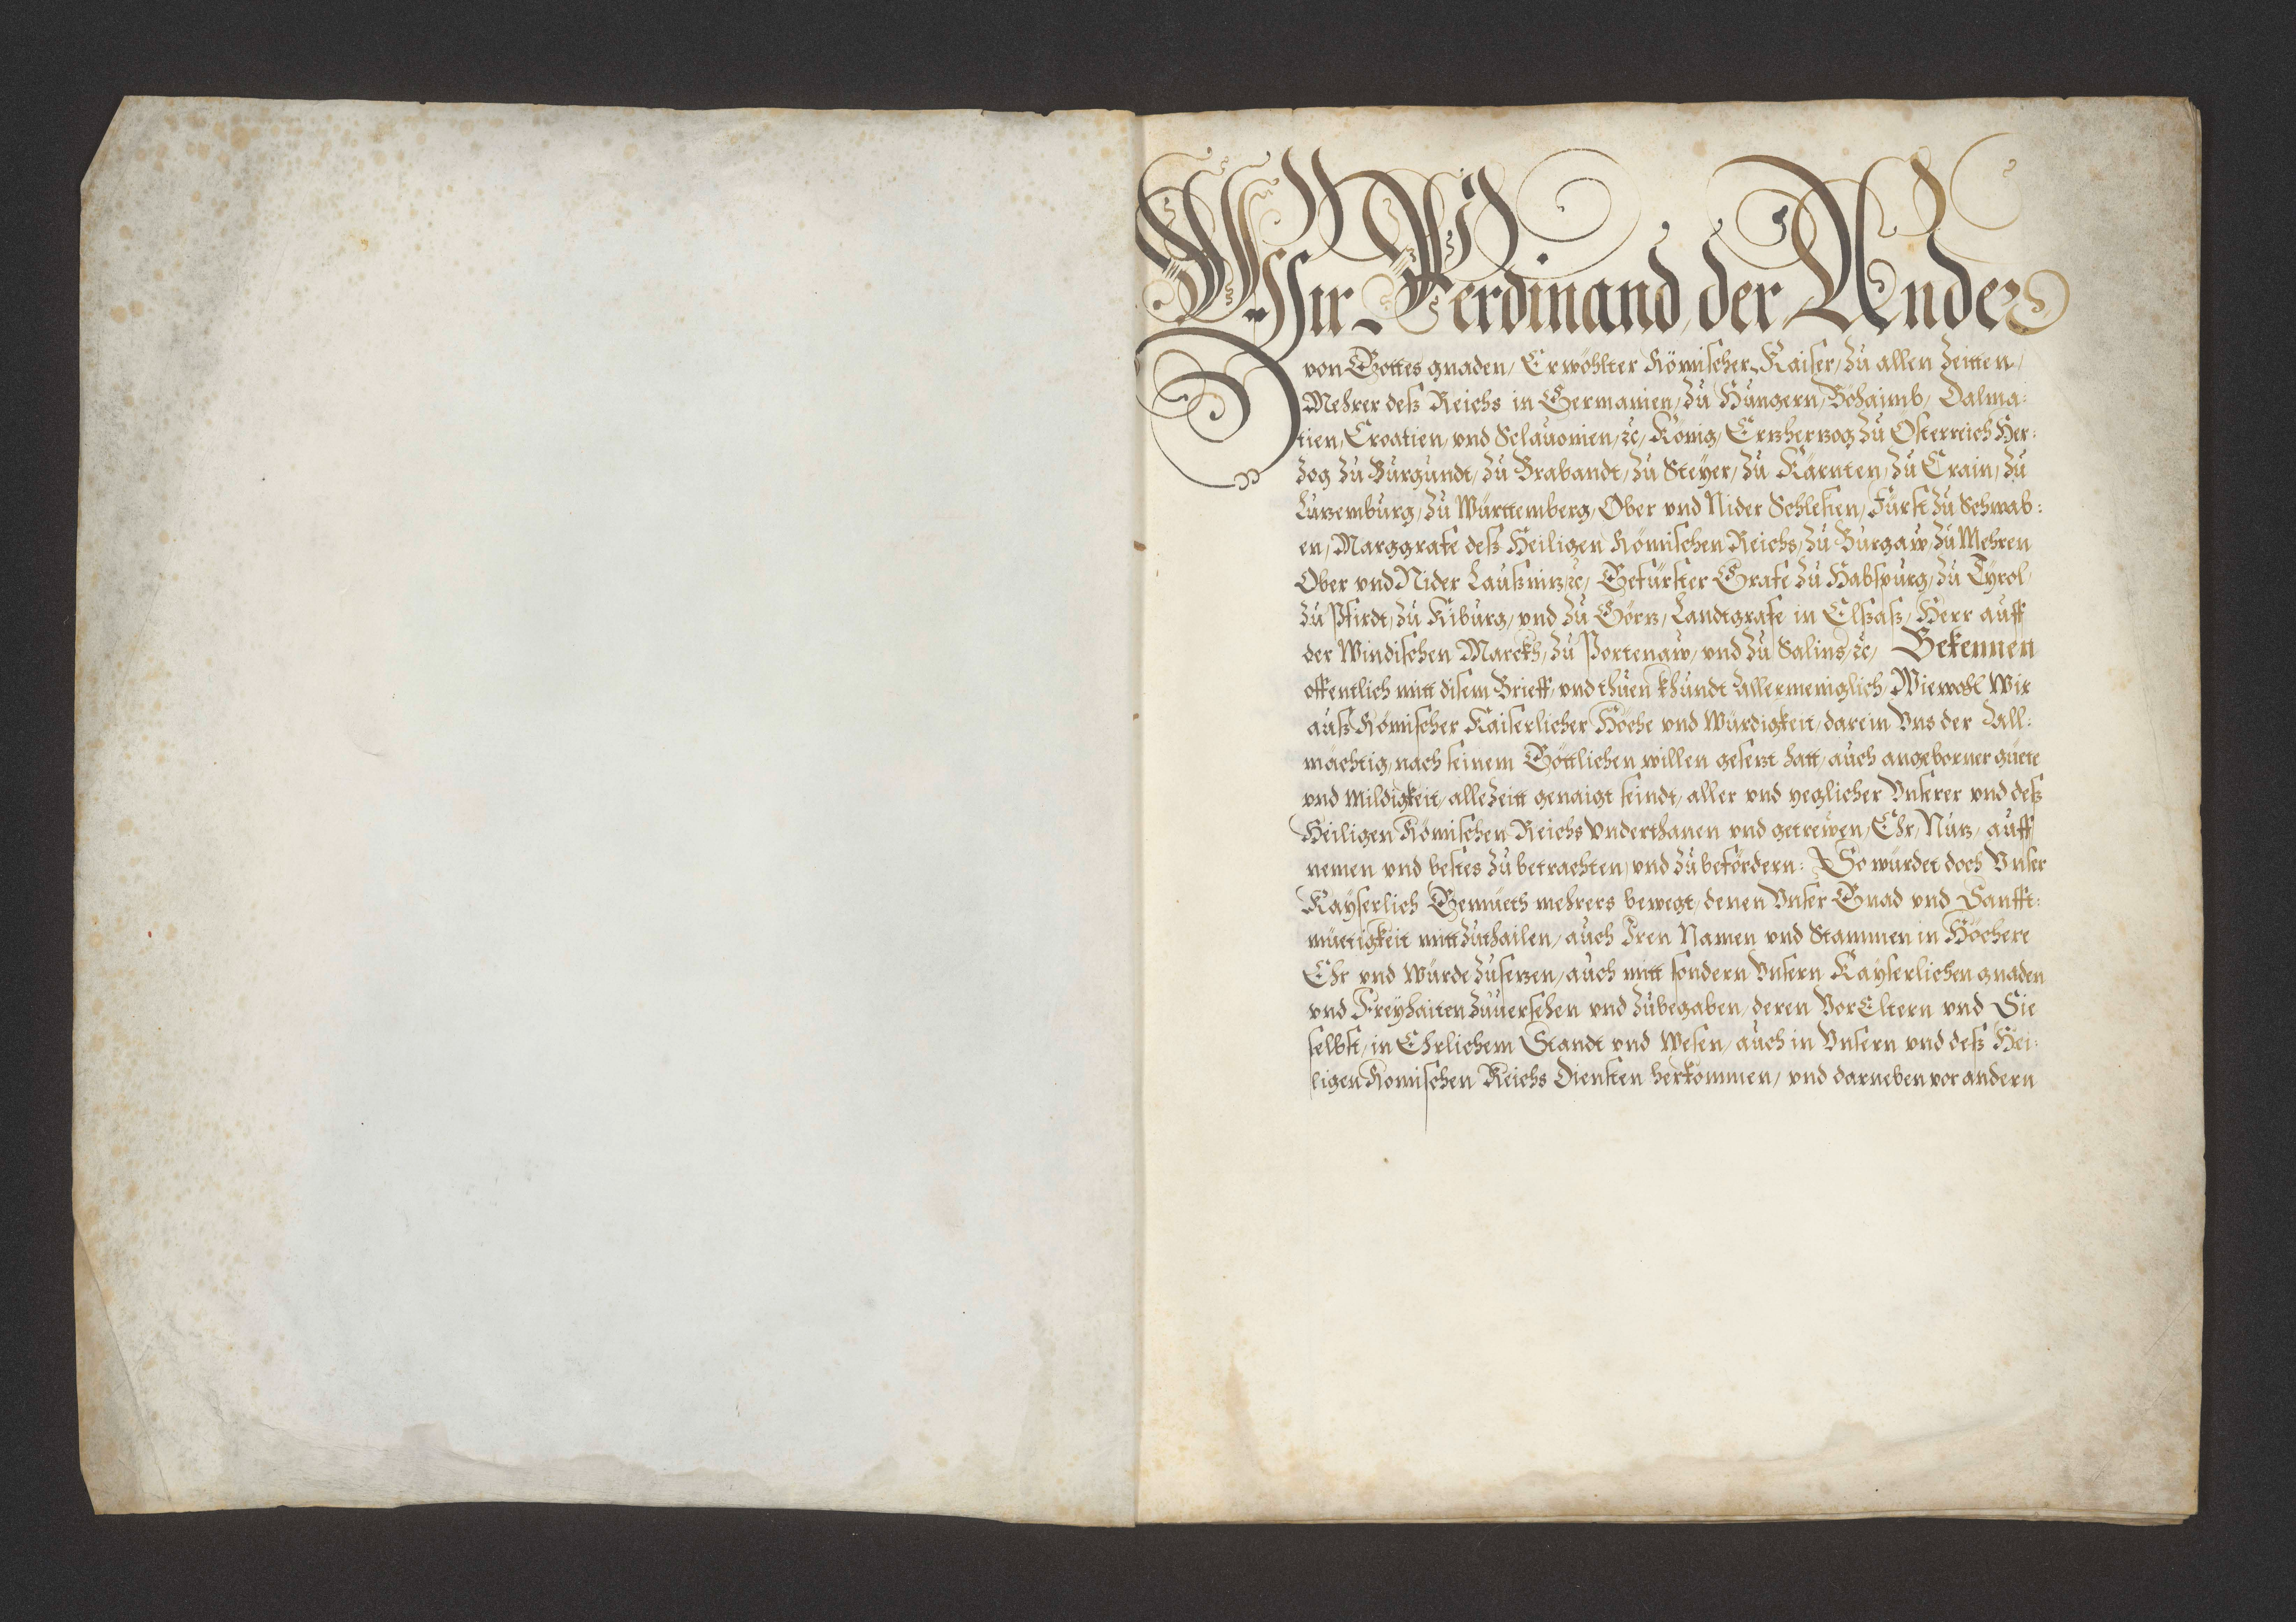 Wir Ferdinand der Ander
von Gottes gnaden, Erwöhlter Römischer Kaiser, zu allen Zeitten,
Mehrer deß Reichs in Germanien, zu Hungern, Böhaimb, Dalma:
tien, Croatien, vnd Sclauonien, ꝛc, König, Ertzhertzog zu Österreich Her:
tzog zu Burgundt, zu Brabandt, zu Steÿer, zu Kärnten, zu Crain, zu
Lutzemburg, zu Württemberg, Ober vnd Nider Schlesien, Fürst zu Schwab:
en, Marggrafe deß Heiligen Römischen Reichs, zu Burgaw, zu Mehren
Ober vnd Nider Laußnitz ꝛc, Gefürster Grafe zu Habspurg, zu Tyrol,
zu Pfirdt, zu Kiburg, vnd zu Görtz, Landtgrafe in Elsaß, Herr auff
der Windischen Marckh, zu Portenaw, vnd zu Salins, ꝛc, Bekennen
offentlich mitt disem Brieff, vnd thuen khundt Allermeniglich, Wiewohl Wir
auß Römischer Kaiserlicher Höche vnd Würdigkeit, darein Vns der All:
mächtig, nach seinem Göttlichen willen gesetzt hatt, auch angeborner güete
vnd Mildigkeit, allezeitt genaigt seindt, aller vnd yeglicher Vnserer vnd deß
Heiligen Römischen Reichs Vnderthanen vnd getrewen, Ehr, Nutz, auff
nemen vnd bestes zu betrachten, vnd zu befördern: So würdet doch Vnser
Kayserlich Gemüeth mehrers bewegt, denen Vnser Gnad vnd Sanfft:
müetigkeit mittzuthailen, auch Iren Namen vnd Stammen in Höchere
Ehr vnd Würde zusetzen, auch mitt sondern Vnsern Kayserlichen gnaden
vnd Freyhaiten zuuersehen vnd zubegaben, deren VorEltern vnd Sie
selbst, in Ehrlichem Standt vnd Wesen, auch in Vnsern vnd deß Hei:
ligen Römischen Reichs Diensten herkommen, vnd darneben vor andern